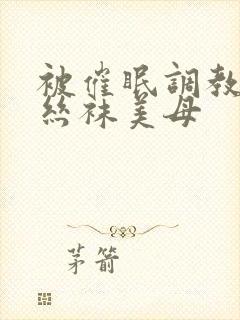 被催眠調教
絲袜美母
茅箭